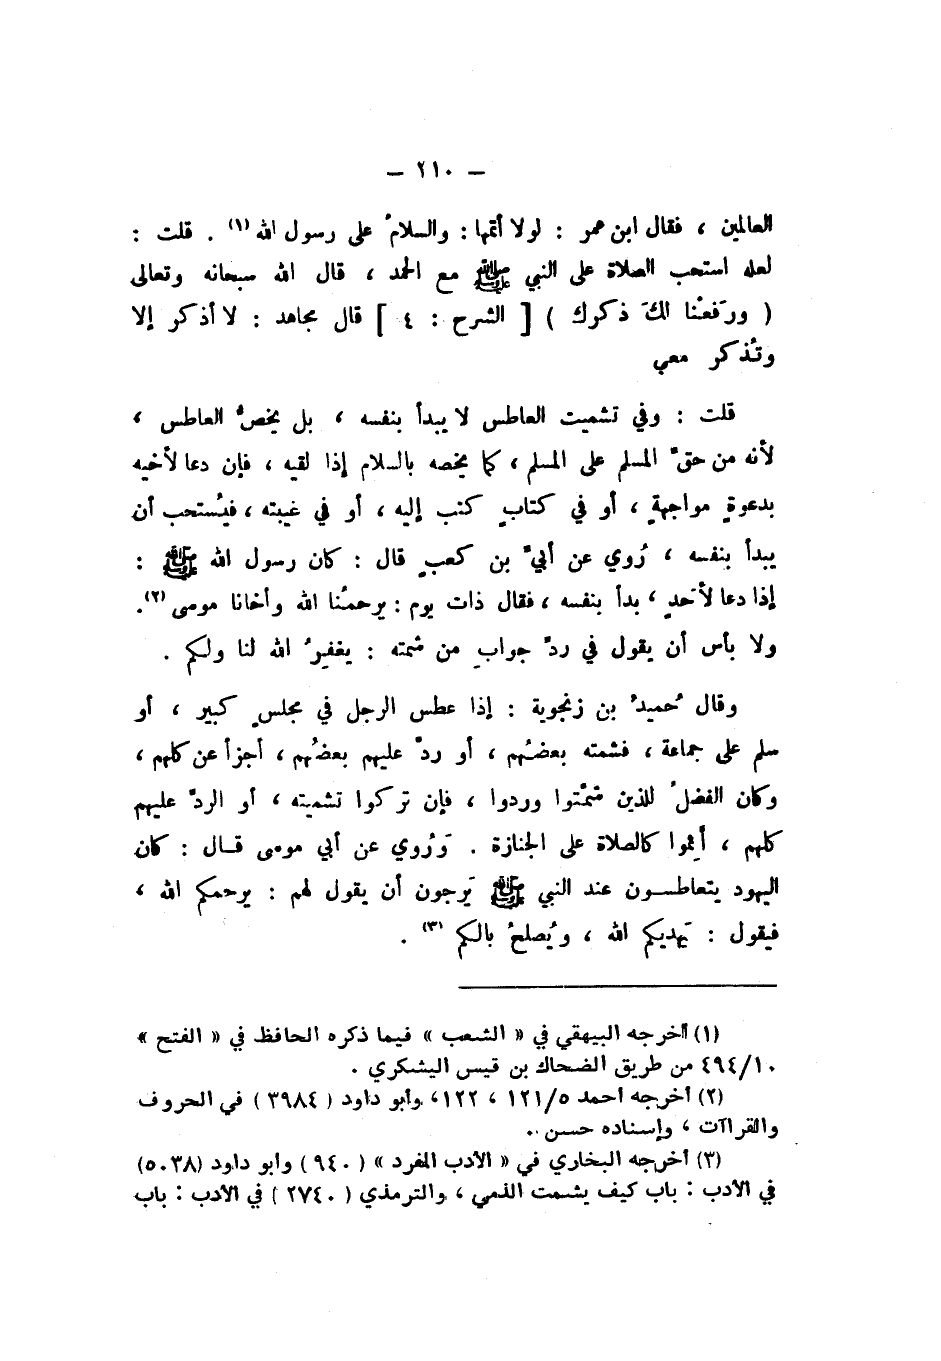 — ٢١٠ —
العالمين ، فقال ابن عمر : لولا أتمها : والسلامُ على رسول الله (١) . قلت :
لعله استحب الصلاة على النبي ﷺ مع الحمد ، قال الله سبحانه وتعالى
( ورَفعنْا لكَ ذكرك ) [ الشرح : ٤ ] قال مجاهد : لا أذكر إلا
وتُذكر معي
قلت : وفي تشميت العاطس لا يبدأ بنفسه ، بل يخصُّ العاطس ،
لأنه من حقّ المسلم على المسلم ، كما يخصه بالسلام إذا لقيه ، فإن دعا لأخيه
بدعوةٍ مواجهةٍ ، أو في كتابٍ كتب إليه ، أو في غيبته ، فيُستحب أن
يبدأ بنفسه ، رُوي عن أبيّ بن كعبٍ قال : كان رسول الله ﷺ :
إذا دعا لأحَدٍ ، بدأ بنفسه ، فقال ذات يوم : يرحمُنا الله وأخانا موسى (٢) .
ولا بأس أن يقول في ردّ جوابِ من شمته : يغفِرُ الله لنا ولكم .
وقال حُميدُ بن زنجوية : إذا عطس الرجل في مجلسٍ كبير ، أو
سلم على جماعة ، فشمته بعضُهم ، أو ردّ عليهم بعضُهم ، أجزأ عن كلهم ،
وكان الفضلُ للذين شمّتوا وردوا ، فإن تركوا تشميته ، أو الردّ عليهم
كلهم ، أثِموا كالصلاة على الجنازة . وَرُوي عن أبي موسى قال : كان
اليهود يتعاطسون عند النبي ﷺ يَرجون أن يقول لهم : يرحمكم الله ،
فيقول : يَهديكم الله ، ويُصلحُ بالكم (٣) .
(١) أخرجه البيهقي في « الشعب » فيما ذكره الحافظ في « الفتح »
٤٩٤/١٠ من طريق الضحاك بن قيس اليشكري .
(٢) أخرجه أحمد ١٢١/٥ ، ١٢٢ ، وأبو داود ( ٣٩٨٤ ) في الحروف
والقراآت ، وإسناده حسن .
(٣) أخرجه البخاري في « الأدب المفرد » ( ٩٤٠ ) وأبو داود (٥٠٣٨)
في الأدب : باب كيف يشمت الذمي ، والترمذي ( ٢٧٤٠ ) في الأدب : باب